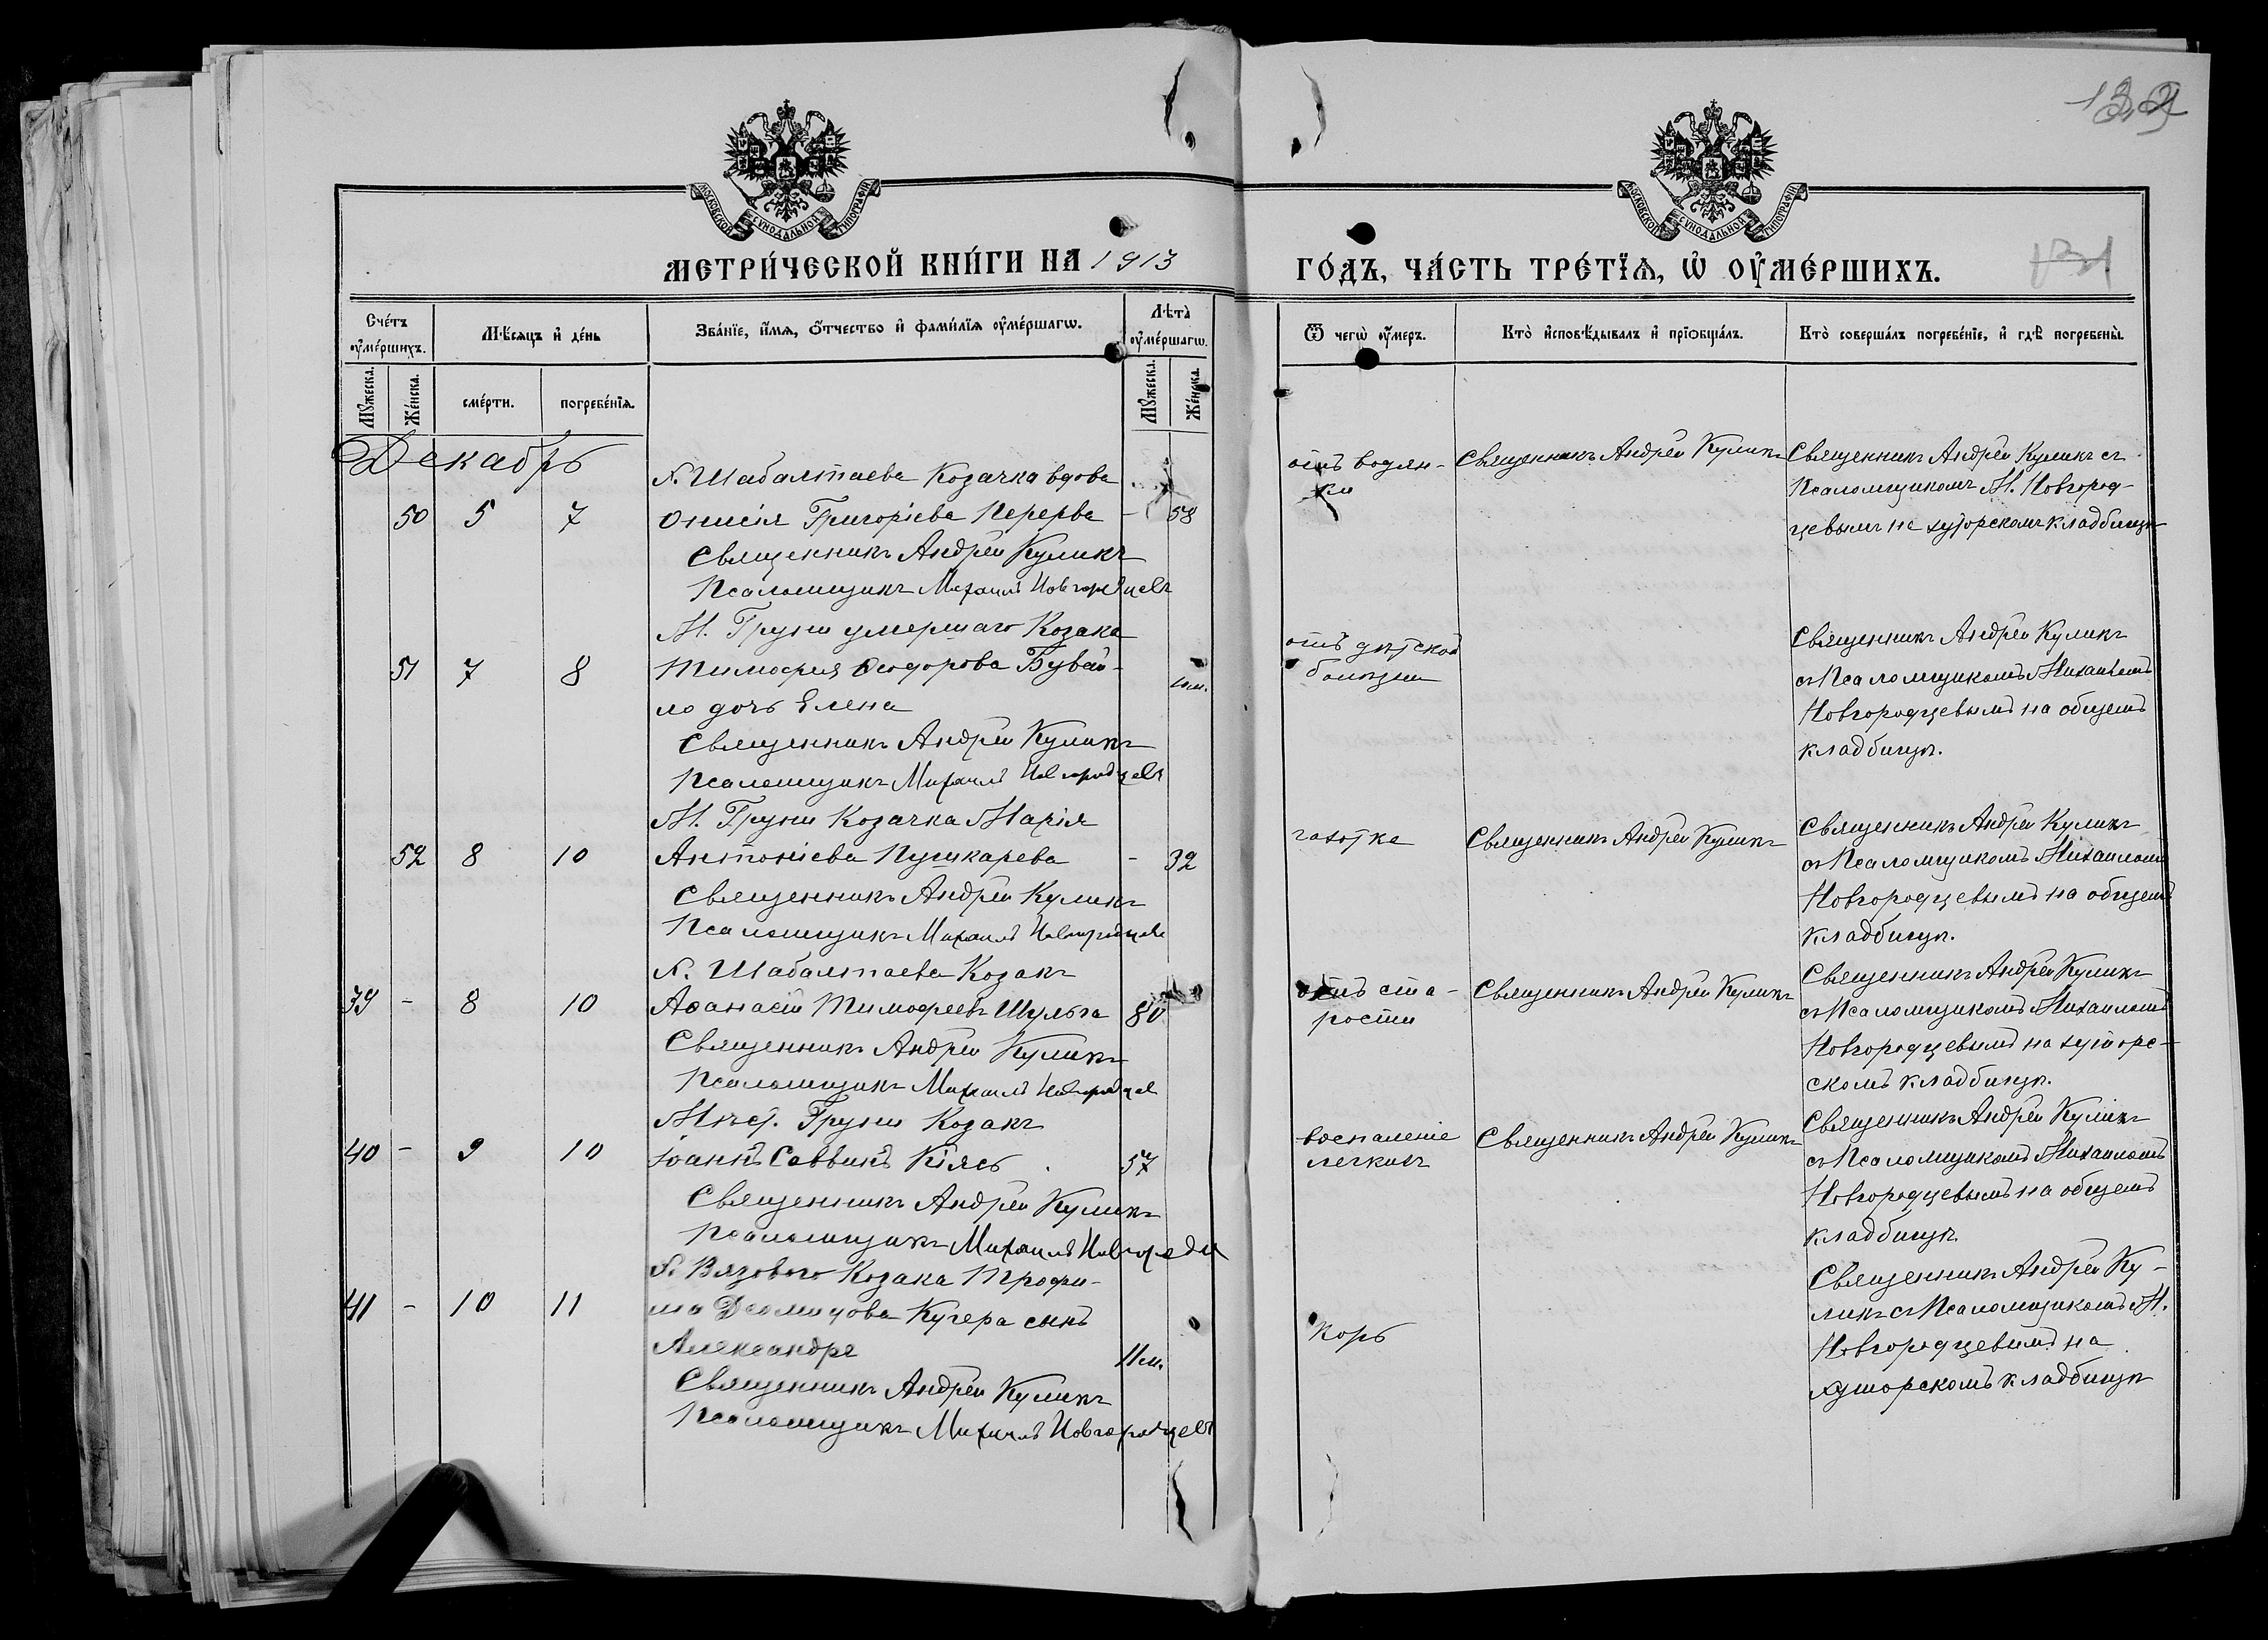 132
МОСКОВСКОЙ СѴНОДАЛЬНОЙ ТИПОГРАФІИ
МОСКОВСКОЙ СѴНОДАЛЬНОЙ ТИПОГРАФІИ
МЕТРИ́ЧЕСКОЙ КНИ́ГИ НА 1913
ГО́ДЪ, ЧА́СТЬ ТРЕ́ТЇѦ, Ѡ҆ ОУ҆МЕ́РШИХЪ.
Сче́тъ оу҆ме́ршихъ.
Мѣ́сяцъ и҆ де́нь
Зва́нїе, и҆́мѧ, ѻ҆́тчество и҆ фами́лїѧ оу҆ме́ршагѡ.
Лѣ́та оу҆ме́ршагѡ.
Ѿ чегѡ̀ оу҆́меръ.
Кто̀ и҆сповѣ́дывалъ и҆ прїѡбща́лъ.
Кто̀ соверша́лъ погребе́нїе, и҆ гдѣ̀ погребены̀.
Мꙋ́жеска.
Же́нска.
сме́рти.
погребе́нїѧ.
Мꙋ́жеска.
Же́нска.
Декабрь
х. Шабалтаева Козачка вдова
50 5 7 Онисія Григоріева Перерва - 58
Священникъ Андрей Куликъ
Псаломщикъ Михаилъ Новгородцевъ
отъ водян-
ки
Священникъ Андрей Куликъ
Священникъ Андрей Куликъ съ
Псаломщикомъ М. Новгород-
цевымъ на хуторскомъ кладбищѣ
М. Груни умершаго Козака
51 7 8 Тимофея Ѳеодорова Бувай-
ло дочь Елена
Священникъ Андрей Куликъ
Псаломщикъ Михаилъ Новгородцевъ
отъ дѣтской
болѣзни
Священникъ Андрей Куликъ
съ Псаломщикомъ Михаиломъ
Новгородцевымъ на общемъ
кладбищѣ.
М. Груни Козачка Марія
52 8 10 Антоніева Пушкарева - 32
Священникъ Андрей Куликъ
Псаломщикъ Михаилъ Новгородцевъ
чахотка
Священникъ Андрей Куликъ
Священникъ Андрей Куликъ
съ Псаломщикомъ Михаиломъ
Новгородцевымъ на общемъ
кладбищѣ.
х. Шабалтаева Козакъ
39 - 8 10 Аѳанасій Тимофеевъ Шульга 80
Священникъ Андрей Куликъ
Псаломщикъ Михаилъ Новгородцев
отъ ста-
рости
Священникъ Андрей Куликъ
Священникъ Андрей Куликъ
съ Псаломщикомъ Михаиломъ
Новгородцевымъ на хуторс-
скомъ кладбищѣ.
Мѣст. Груни Козакъ
40 - 9 10 Іоаннъ Саввинъ Кіясь 57
Священникъ Андрей Куликъ
Псаломщикъ Михаилъ Новгородц
воспаленіе
легкихъ
Священникъ Андрей Куликъ
Священникъ Андрей Куликъ
съ Псаломщикомъ Михаиломъ
Новгородцевымъ на общемъ
кладбищѣ.
х. Вязового Козака Трофи-
41 - 10 11 ма Диомидова Кучера сынъ
Александръ 11 м.
Священникъ Андрей Куликъ
Псаломщикъ Михаилъ Новгородцевъ
Корь
Священникъ Андрей Ку-
ликъ съ Псаломщикомъ М.
Новгородцевымъ на
хуторскомъ кладбищѣ